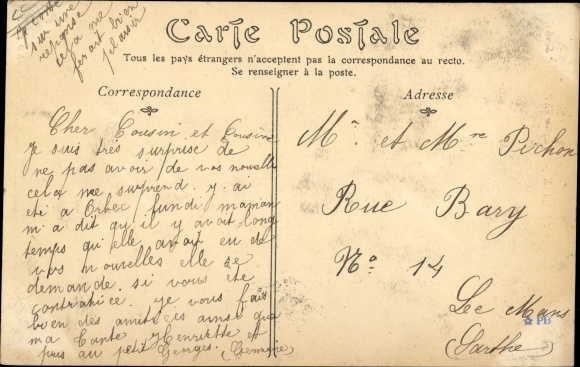 Je compte
sur une
réponse
cela me
ferait bien
plaisir
Carte Postale
Tous les pays étrangers n'acceptent pas la correspondance au recto.
Se renseigner à la poste.
Correspondance
Adresse
Cher Cousin et Cousine
Je suis très surprise de
ne pas avoir de vos nouvelle
cela me surprend. y. ai
été a Orbec lundi maman
m'a dit qu'il y avait long
temps qu'elle avait eu de
vos nouvelles elle se
demande. si vous ete
contrariée. je vous fais
bien des amitiées ainsi que
ma Tante Henriette et
puis au petit Georges. (Germaine)
Mr et Mme Pichon
Rue Bary
No 14
Le Mans
PB
(Sarthe)